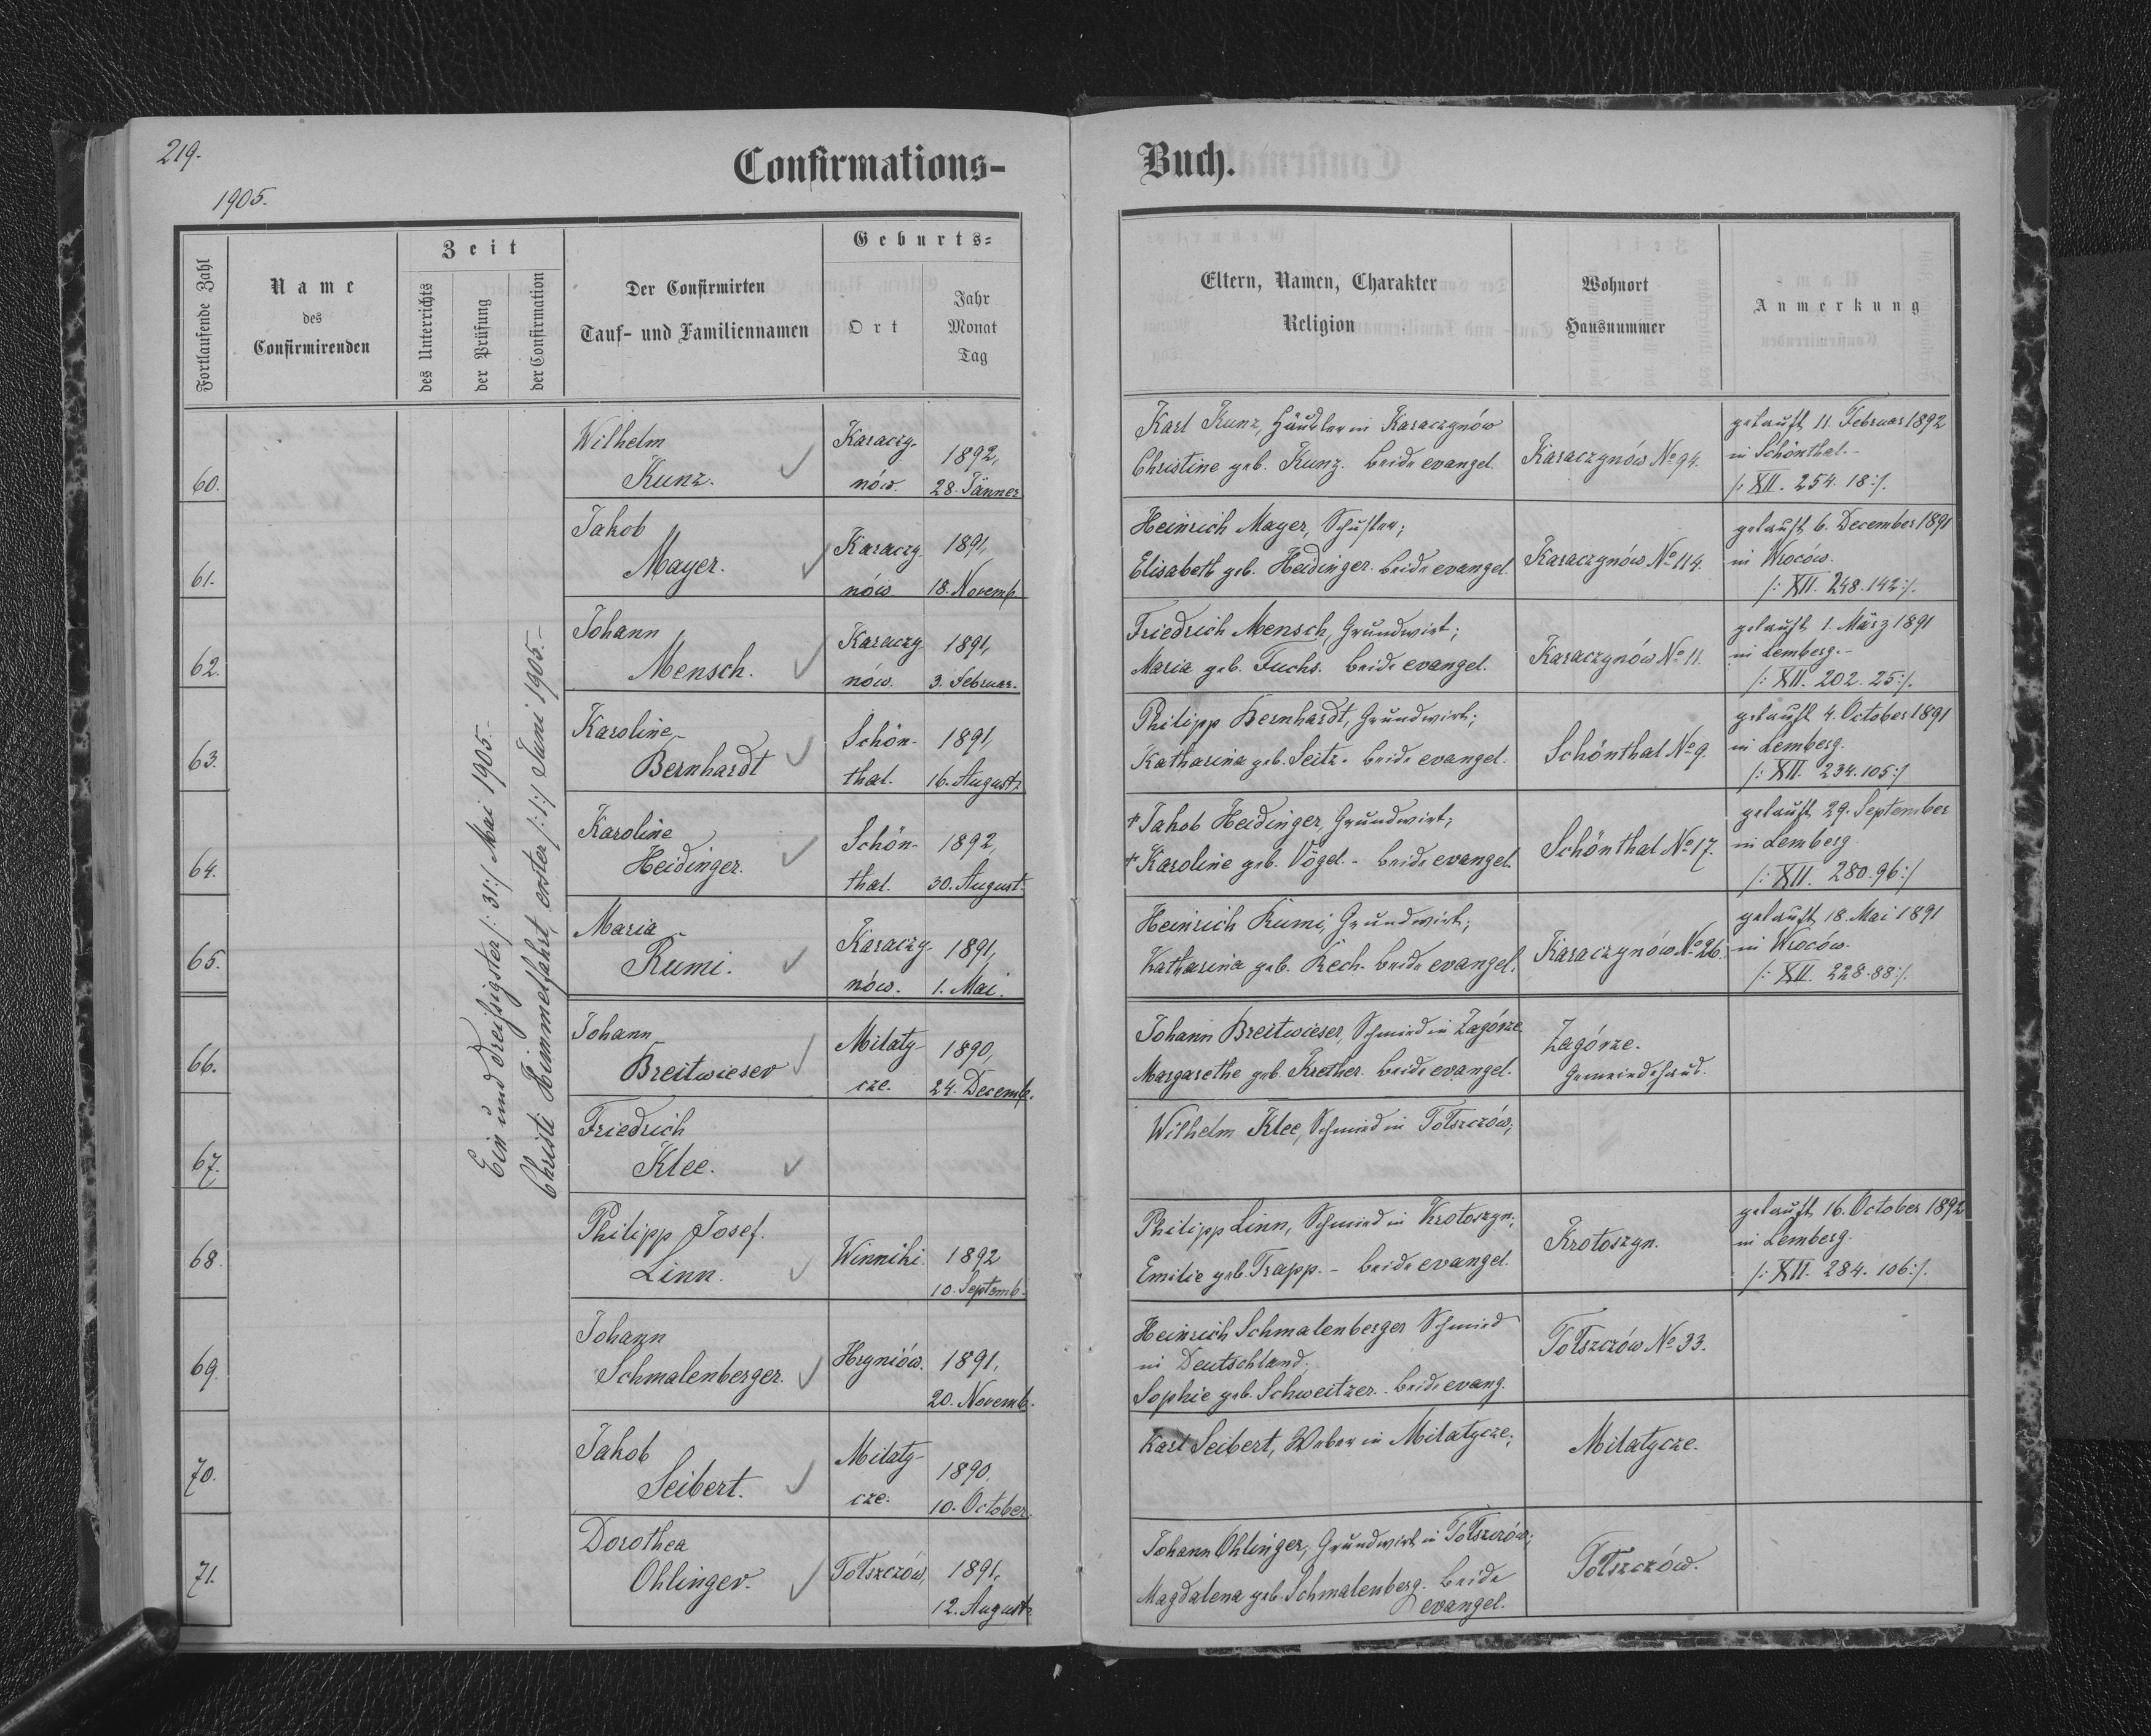 219.
1905.
Confirmations-
Buch.
Fortlaufende Zahl
Name
des
Confirmirenden
Zeit
des Unterrichts
der Prüfung
der Confirmation
Der Confirmirten
Tauf- und Familiennamen
Geburts-
Ort
Jahr
Monat
Tag
Eltern, Namen, Charakter
Religion
Wohnort
Hausnummer
Anmerkung
Ein und dreißigster /: 31:/ Mai 1905.-
Christi Himmelfahrt, erster /:1:/ Juni 1905.-
60.
Wilhelm
Kunz.
Karaczy-
nów.
1892,
28. Jänner
Karl Kunz, Häusler in Karaczynów
Christine geb. Kunz. beide evangel.
Karaczynów No 94.
getauft 11. Februar 1892
in Schönthal.-
/: XII. 254. 18:/.
61.
Jakob
Mayer.
Karaczy-
nów
1891,
18. Novemb.
Heinrich Mayer, Schuster;
Elisabeth geb. Heidinger. beide evangel.
Karaczynów No 114.
getauft 6. December 1891
in Wroców.
/: XII. 248. 142:/.
62.
Johann
Mensch.
Karaczy
nów.
1891,
3. Februar.
Friedrich Mensch, Grundwirt;
Maria geb. Fuchs. beide evangel.
Karaczynów No 11.
getauft 1. März 1891
in Lemberg.-
/: XII. 202. 25:/.
63.
Karoline
Bernhardt
Schön-
thal.
1891,
16. August.
Philipp Bernhardt, Grundwirt;
Katharina geb. Seitz. beide evangel.
Schönthal No 9.
getauft 4. October 1891
in Lemberg.
/: XII. 234. 105:/
64.
Karoline
Heidinger.
Schön-
thal.
1892,
30. August.
+ Jakob Heidinger, Grundwirt;
+ Karoline geb. Vögel. - beide evangel.
Schönthal No 17.
getauft 29. September
in Lemberg
/: XII. 280. 96:/
65.
Maria
Rumi.
Karaczy-
nów.
1891,
1. Mai.
Heinrich Rumi, Grundwirt;
Katharina geb. Rech. beide evangel.
Karaczynów No 26.
getauft 18. Mai 1891
in Wroców.
/: XII. 228. 88:/.
66.
Johann
Breitwieser
Milaty-
cze.
1890,
24. Decemb.
Johann Breitwieser, Schmied in Zagórze
Margarethe geb. Krether. beide evangel.
Zagórze.
Gemeindehaus.
67.
Friedrich
Klee.
Wilhelm Klee, Schmied in Tołszczów;
68.
Philipp Josef.
Linn.
Winniki.
1892
10. Septemb.
Philipp Linn, Schmied in Krotoszyn;
Emilie geb. Trapp. - beide evangel.
Krotoszyn.
getauft 16. October 1892
in Lemberg.
/: XII. 284. 106:/.
69.
Johann
Schmalenberger.
Hryniów.
1891,
20. Novemb.
Heinrich Schmalenberger Schmied
in Deutschland;
Sophie geb. Schweitzer. beide evang.
Tołszczów No 33.
70.
Jakob
Seibert.
Milaty-
cze.
1890,
10. October.
Karl Seibert, Weber in Milatycze;
Milatycze.
71.
Dorothea
Ohlinger.
Tołszczów,
1891,
12. August.
Johann Ohlinger, Grundwirt in Tołszczów;
Magdalena geb. Schmalenberg. beide
evangel.
Tołszczów.